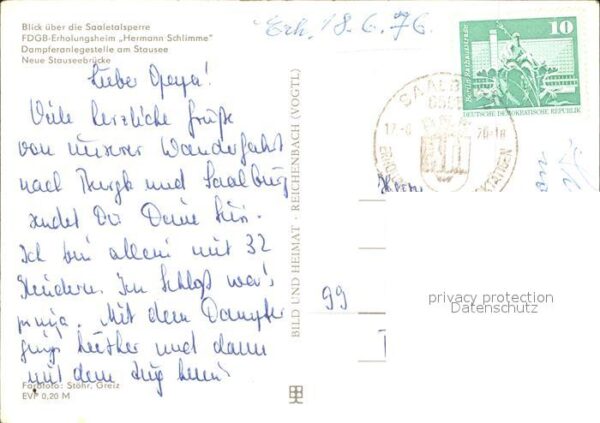 Blick über die Saaletalsperre
FDGB-Erholungsheim „Hermann Schlimme"
Dampferanlegestelle am Stausee
Neue Stauseebrücke
Erh. 18.6.76.
10
Berlin, Rathausstraße
DEUTSCHE DEMOKRATISCHE REPUBLIK
SAALBURG
17.-6
76-18
Lieber Opapa!
Viele herzliche Grüße
von unserer Wanderfahrt
nach Burgk und Saalburg
sendet Dir Deine
Ich bin allein mit 32
Kindern. Im Schloß war's
prima. Mit dem Dampfer
ging's hierher und dann
mit dem Zug heim!
BILD UND HEIMAT · REICHENBACH (VOGTL)
Herrn
99
privacy protection
Datenschutz
Farbfoto: Stöhr, Greiz
EVP 0,20 M